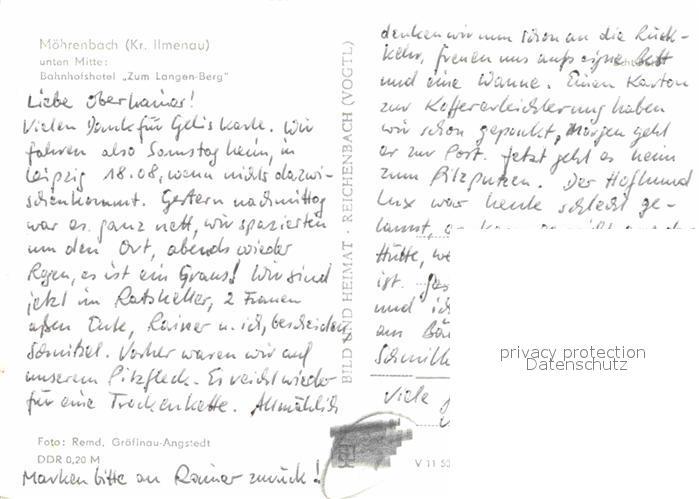 Möhrenbach (Kr. Ilmenau)
unten Mitte:
Bahnhofshotel „Zum Langen-Berg"
Liebe Oberhainer!
Vielen Dank für Gelis Karte. Wir
fahren also Samstag heim, in
Leipzig 18.08, wenn nichts dazwi-
schenkommt. Gestern nachmittag
war es ganz nett, wir spazierten
um den Ort, abends wieder
Regen, es ist ein Graus! Wir sind
jetzt im Ratskeller, 2 Frauen
aßen Ente, Rainer u. ich, bescheiden
Schnitzel. Vorher waren wir auf
unserem Pilzfleck. Es reicht wieder
für eine Trockenkette. Allmählich
Foto: Remd, Gräfinau-Angstedt
DDR 0,20 M
Marken bitte an Rainer zurück!
BILD UND HEIMAT · REICHENBACH (VOGTL)
denken wir nun schon an die Rück-
kehr, freuen uns aufs eigne Bett
und eine Wanne. Einen Karton
zur Koffererleichterung haben
wir schon gepackt, Morgen geht
er zur Post. Jetzt geht es heim
zum Pilzputzen. Der Hofhund
Lux war heute schlecht ge-
launt,
Hütte,
ist.
und ich
am
Viele
V 11 50
privacy protection
Datenschutz